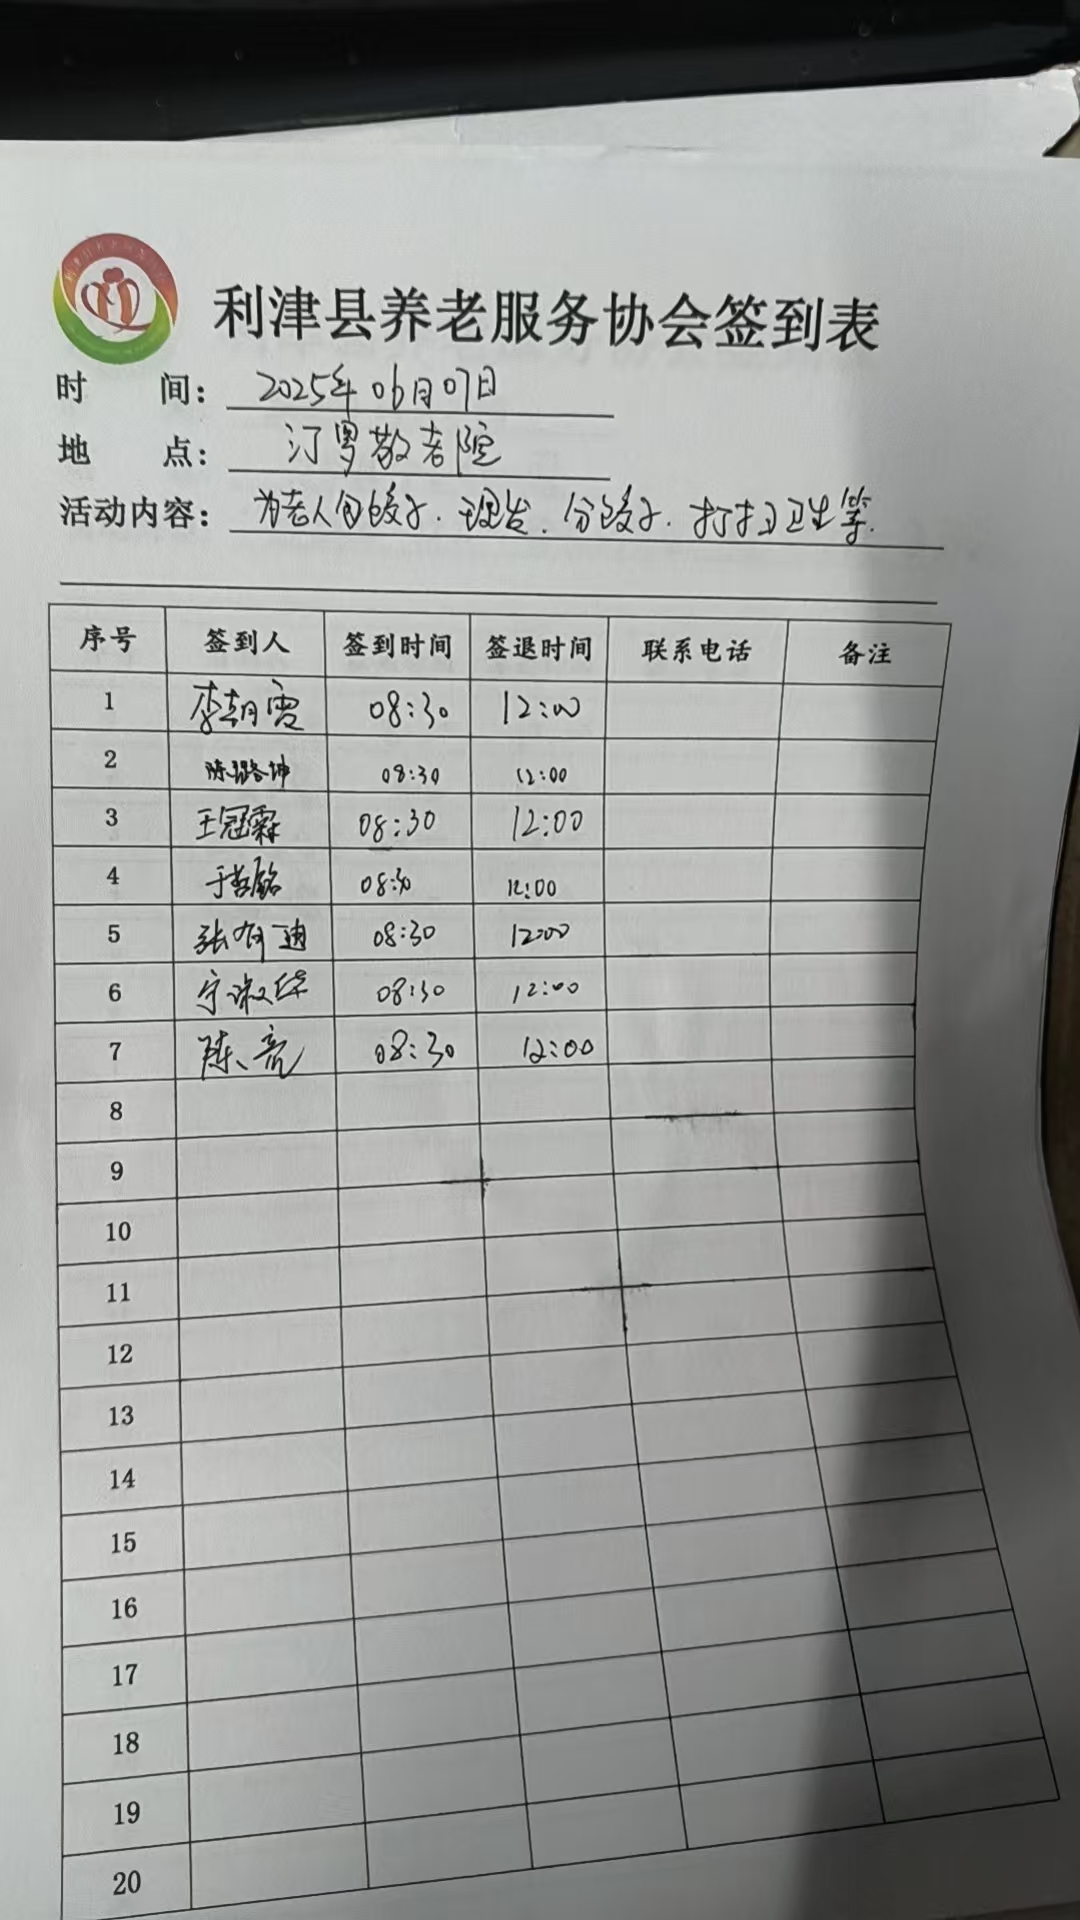 利津县养老服务协会签到表
时 间： 2025年06月07日
地 点： 汀罗敬老院
活动内容： 为老人包饺子．理发．分饺子．打扫卫生等．
序号 签到人 签到时间 签退时间 联系电话 备注
1 李朝霞 08:30 12:00
2 陈璐坤 08:30 12:00
3 王冠霖 08:30 12:00
4 于哲铭 08:30 12:00
5 张有迪 08:30 12:00
6 宁淑华 08:30 12:00
7 陈亮 08:30 12:00
8
9
10
11
12
13
14
15
16
17
18
19
20